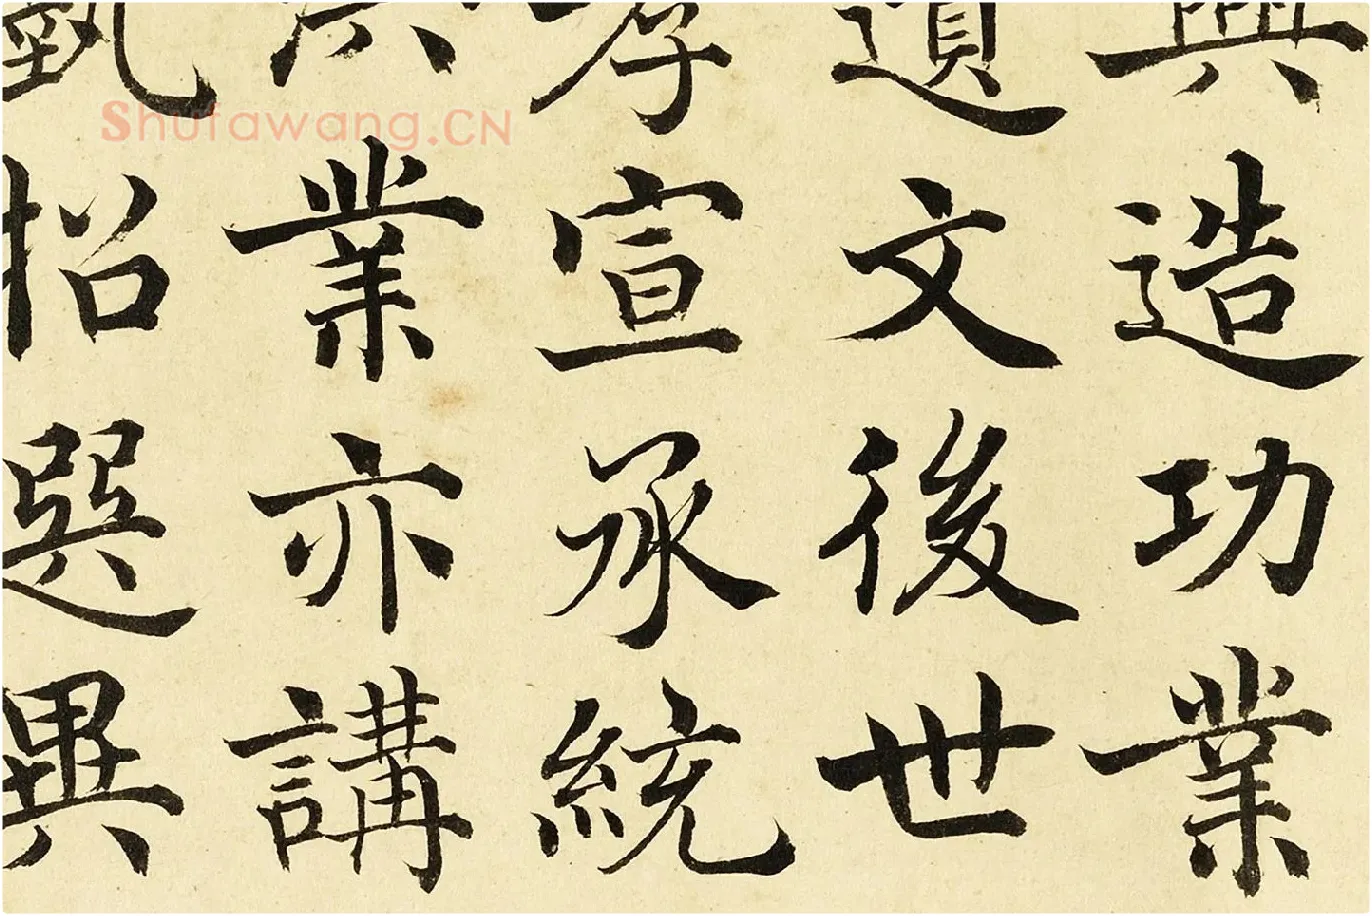 興造功業
遺文後世
孝宣承統
洪業亦講
藝招選異
Shufawang.CN